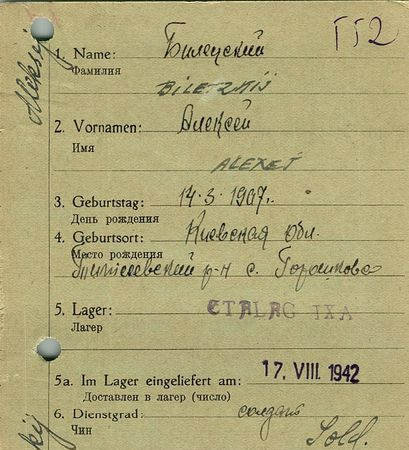 Aleksij
1. Name: Билецкий
Фамилия
BILETZKIJ
2. Vornamen: Алексей
Имя
ALEXEJ
3. Geburtstag: 14.3.1907г.
День рождения
4. Geburtsort: Киевская обл.
Место рождения
р-н с.
5. Lager: STALAG IXA
Лагер
5a. Im Lager eingeliefert am: 17. VIII. 1942
Доставлен в лагер (число)
6. Dienstgrad: солдат
Чин
Sold.